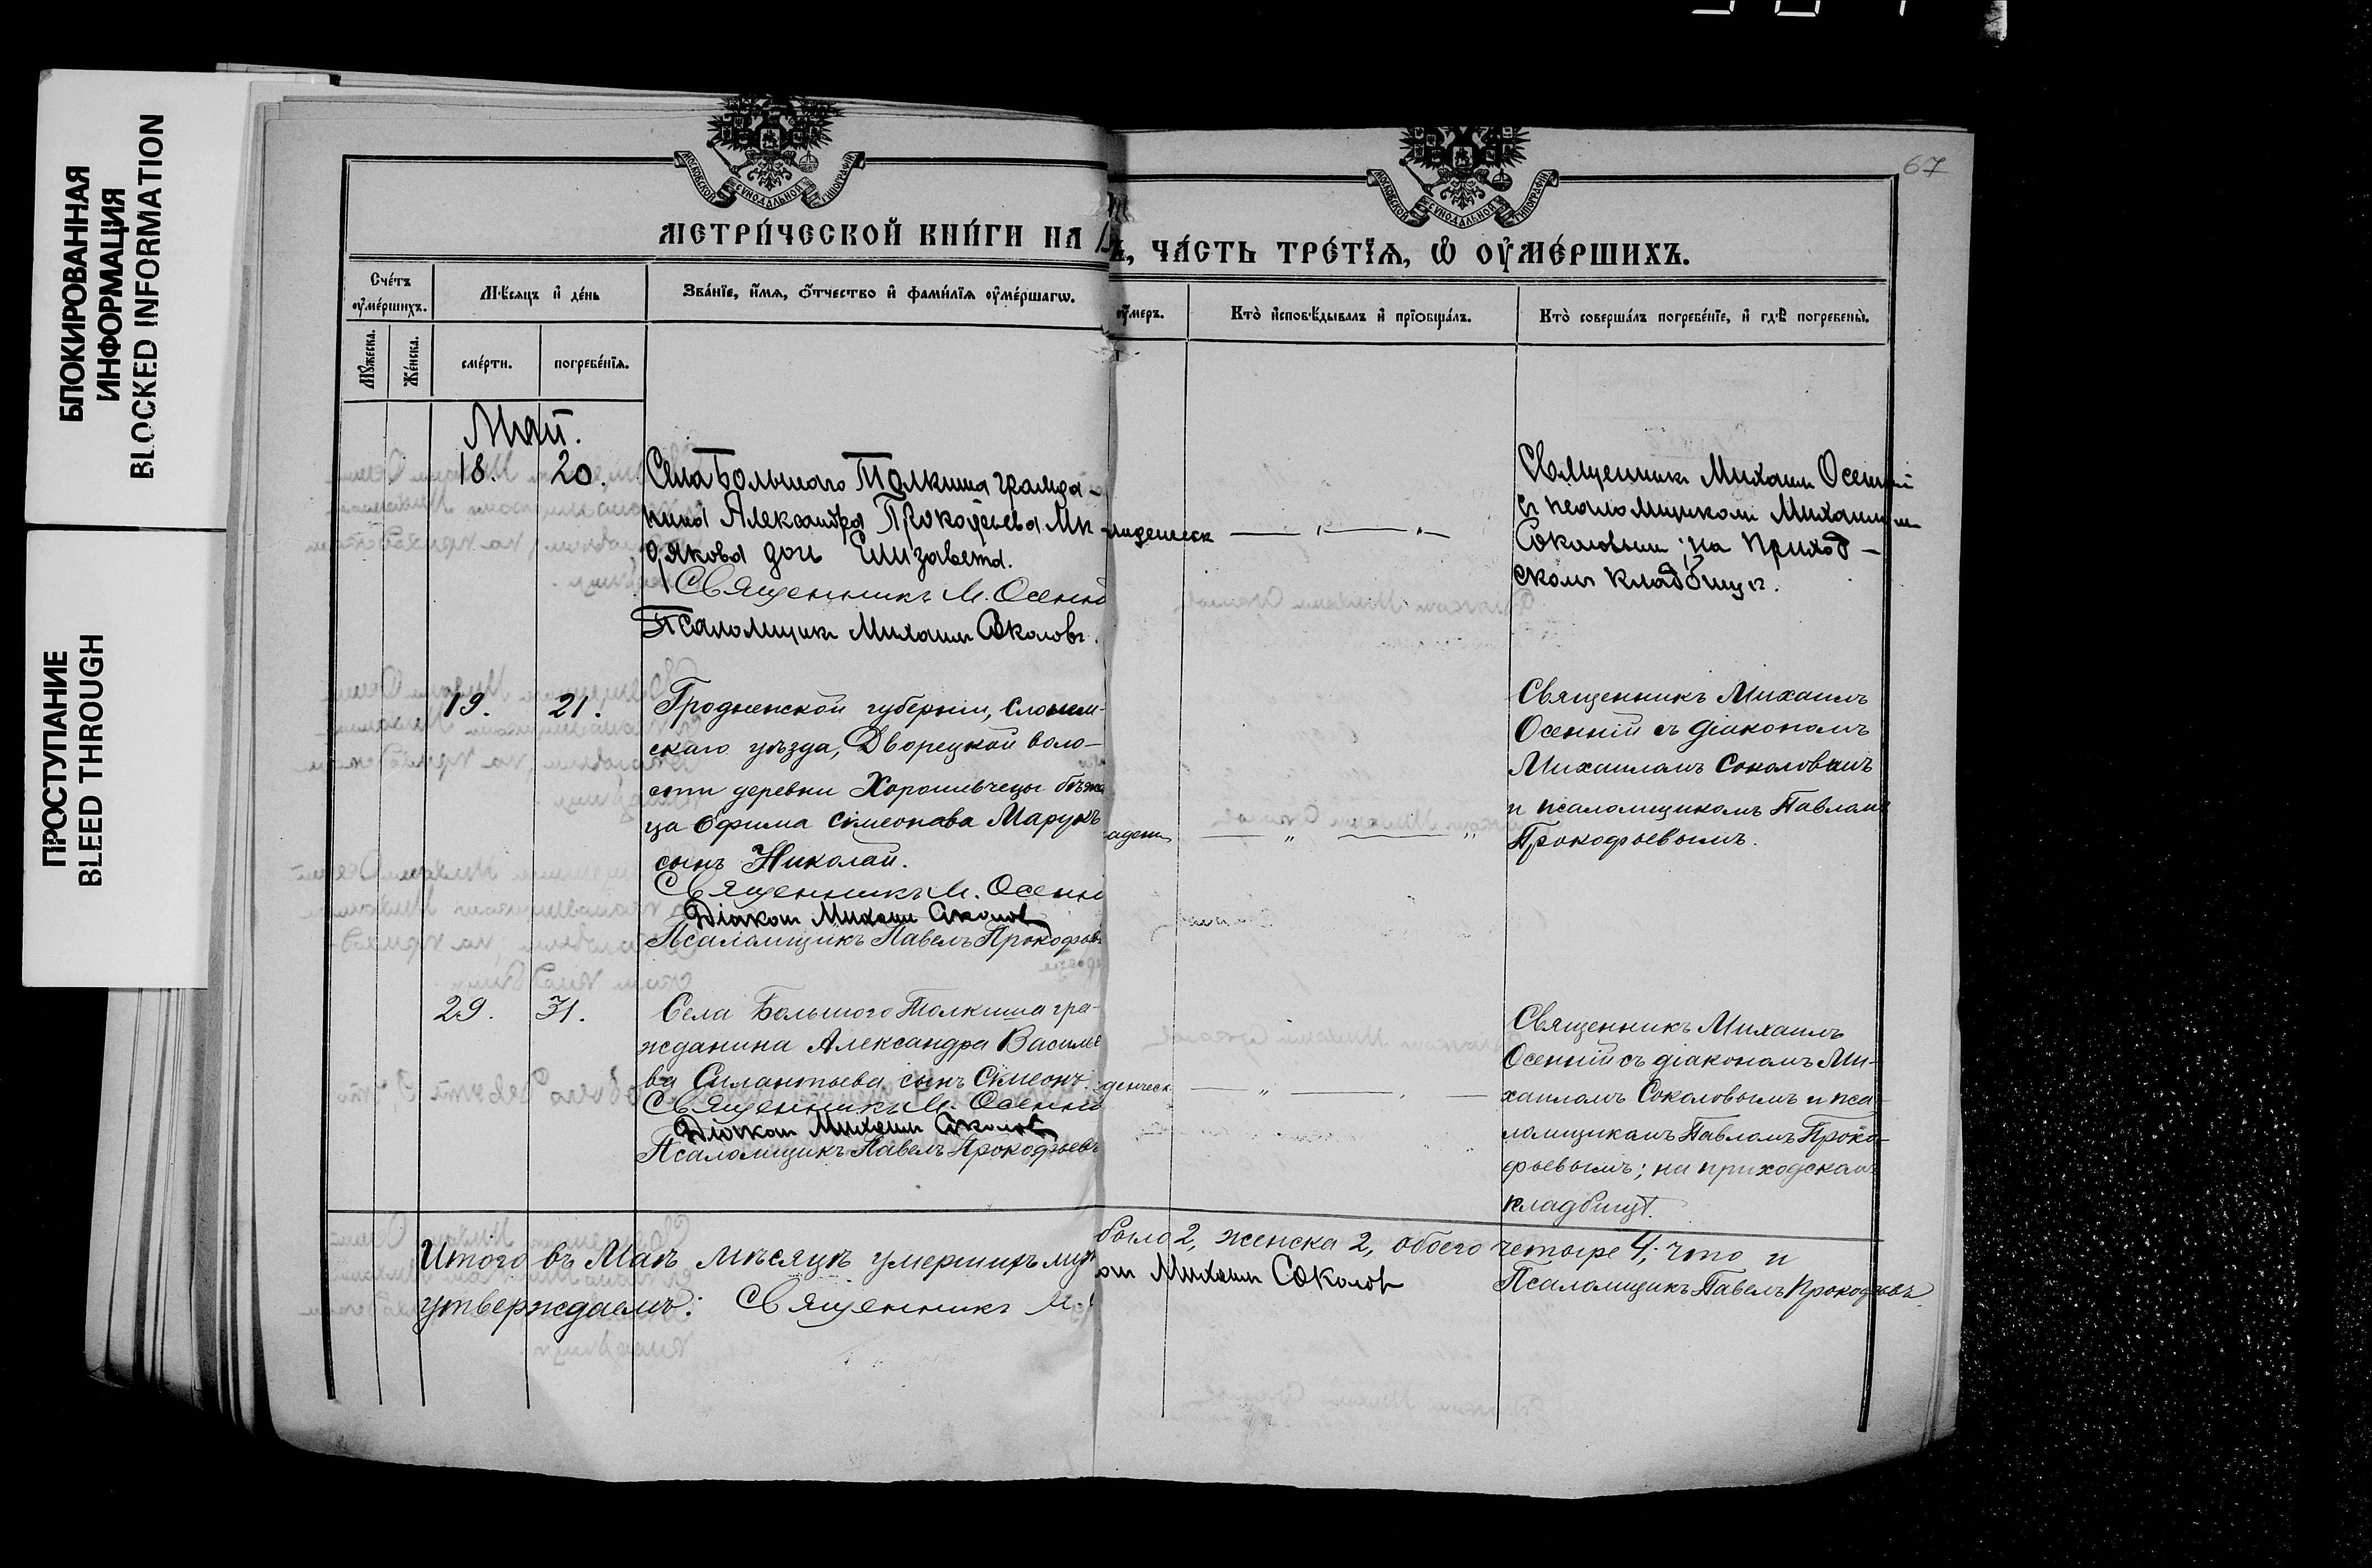 БЛОКИРОВАННАЯ
ИНФОРМАЦИЯ
BLOCKED INFORMATION
ПРОСТУПАНИЕ
BLEED THROUGH
67
МОСКОВСКОЙ СѴНОДАЛЬНОЙ ТИПОГРАФІИ
МОСКОВСКОЙ СѴНОДАЛЬНОЙ ТИПОГРАФІИ
МЕТРИ́ЧЕСКОЙ КНИ́ГИ НА
ЧА́СТЬ ТРЕ́ТЇѦ, Ѡ҆ ОУ҆МЕ́РШИХЪ.
Сче́тъ
оу҆ме́ршихъ.
Мѣ́сѧцъ и҆ де́нь
Зва́нїе, и҆́мѧ, ѻ҆́тчество и҆ фами́лїѧ оу҆ме́ршагѡ.
оу҆́меръ.
Кто̀ и҆сповѣ́дывалъ и҆ прїѡбща́лъ.
Кто̀ соверша́лъ погребе́нїе, и҆ гдѣ̀ погребены̀.
Мꙋ́жеска.
Же́нска.
сме́рти.
погребе́нїѧ.
Май.
18.
20.
Села Большаго Толкиша гражда-
нина Александра Прокофьева
дочь Елизавета.
Священникъ М. Осенній
Псаломщикъ Михаилъ Соколовъ.
младенческ
Священникъ Михаилъ Осенній
съ псаломщикомъ Михаиломъ
Соколовымъ; на приход-
скомъ кладбищѣ.
19.
21.
Гродненской губерніи, Слоним-
скаго уѣзда, Дворецкой воло-
сти деревни Хорошевчецы бѣжен
ца Ефима Симеонова Марукъ
сынъ Николай.
Священникъ М. Осенній
Діаконъ Михаилъ Соколовъ
Псаломщикъ Павелъ Прокофьевъ
Священникъ Михаилъ
Осенній съ діакономъ
Михаиломъ Соколовымъ
и псаломщикомъ Павломъ
Прокофьевымъ.
29.
31.
Села Большого Толкиша гра-
жданина Александра Василье
ва Силантьева сынъ Симеонъ.
Священникъ М. Осенній
Діаконъ Михаилъ Соколовъ
Псаломщикъ Павелъ Прокофьевъ
денческ
Священникъ Михаилъ
Осенній съ діакономъ Ми-
хаиломъ Соколовымъ и пса-
ломщикомъ Павломъ Проко-
фьевымъ; на приходскомъ
кладбищѣ.
Итого въ Маѣ мѣсяцѣ умершихъ муж
было 2, женска 2, обоего четыре 4; что и
утверждаемъ: Священникъ М.
Михаилъ Соколовъ
Псаломщикъ Павелъ Прокофьевъ.